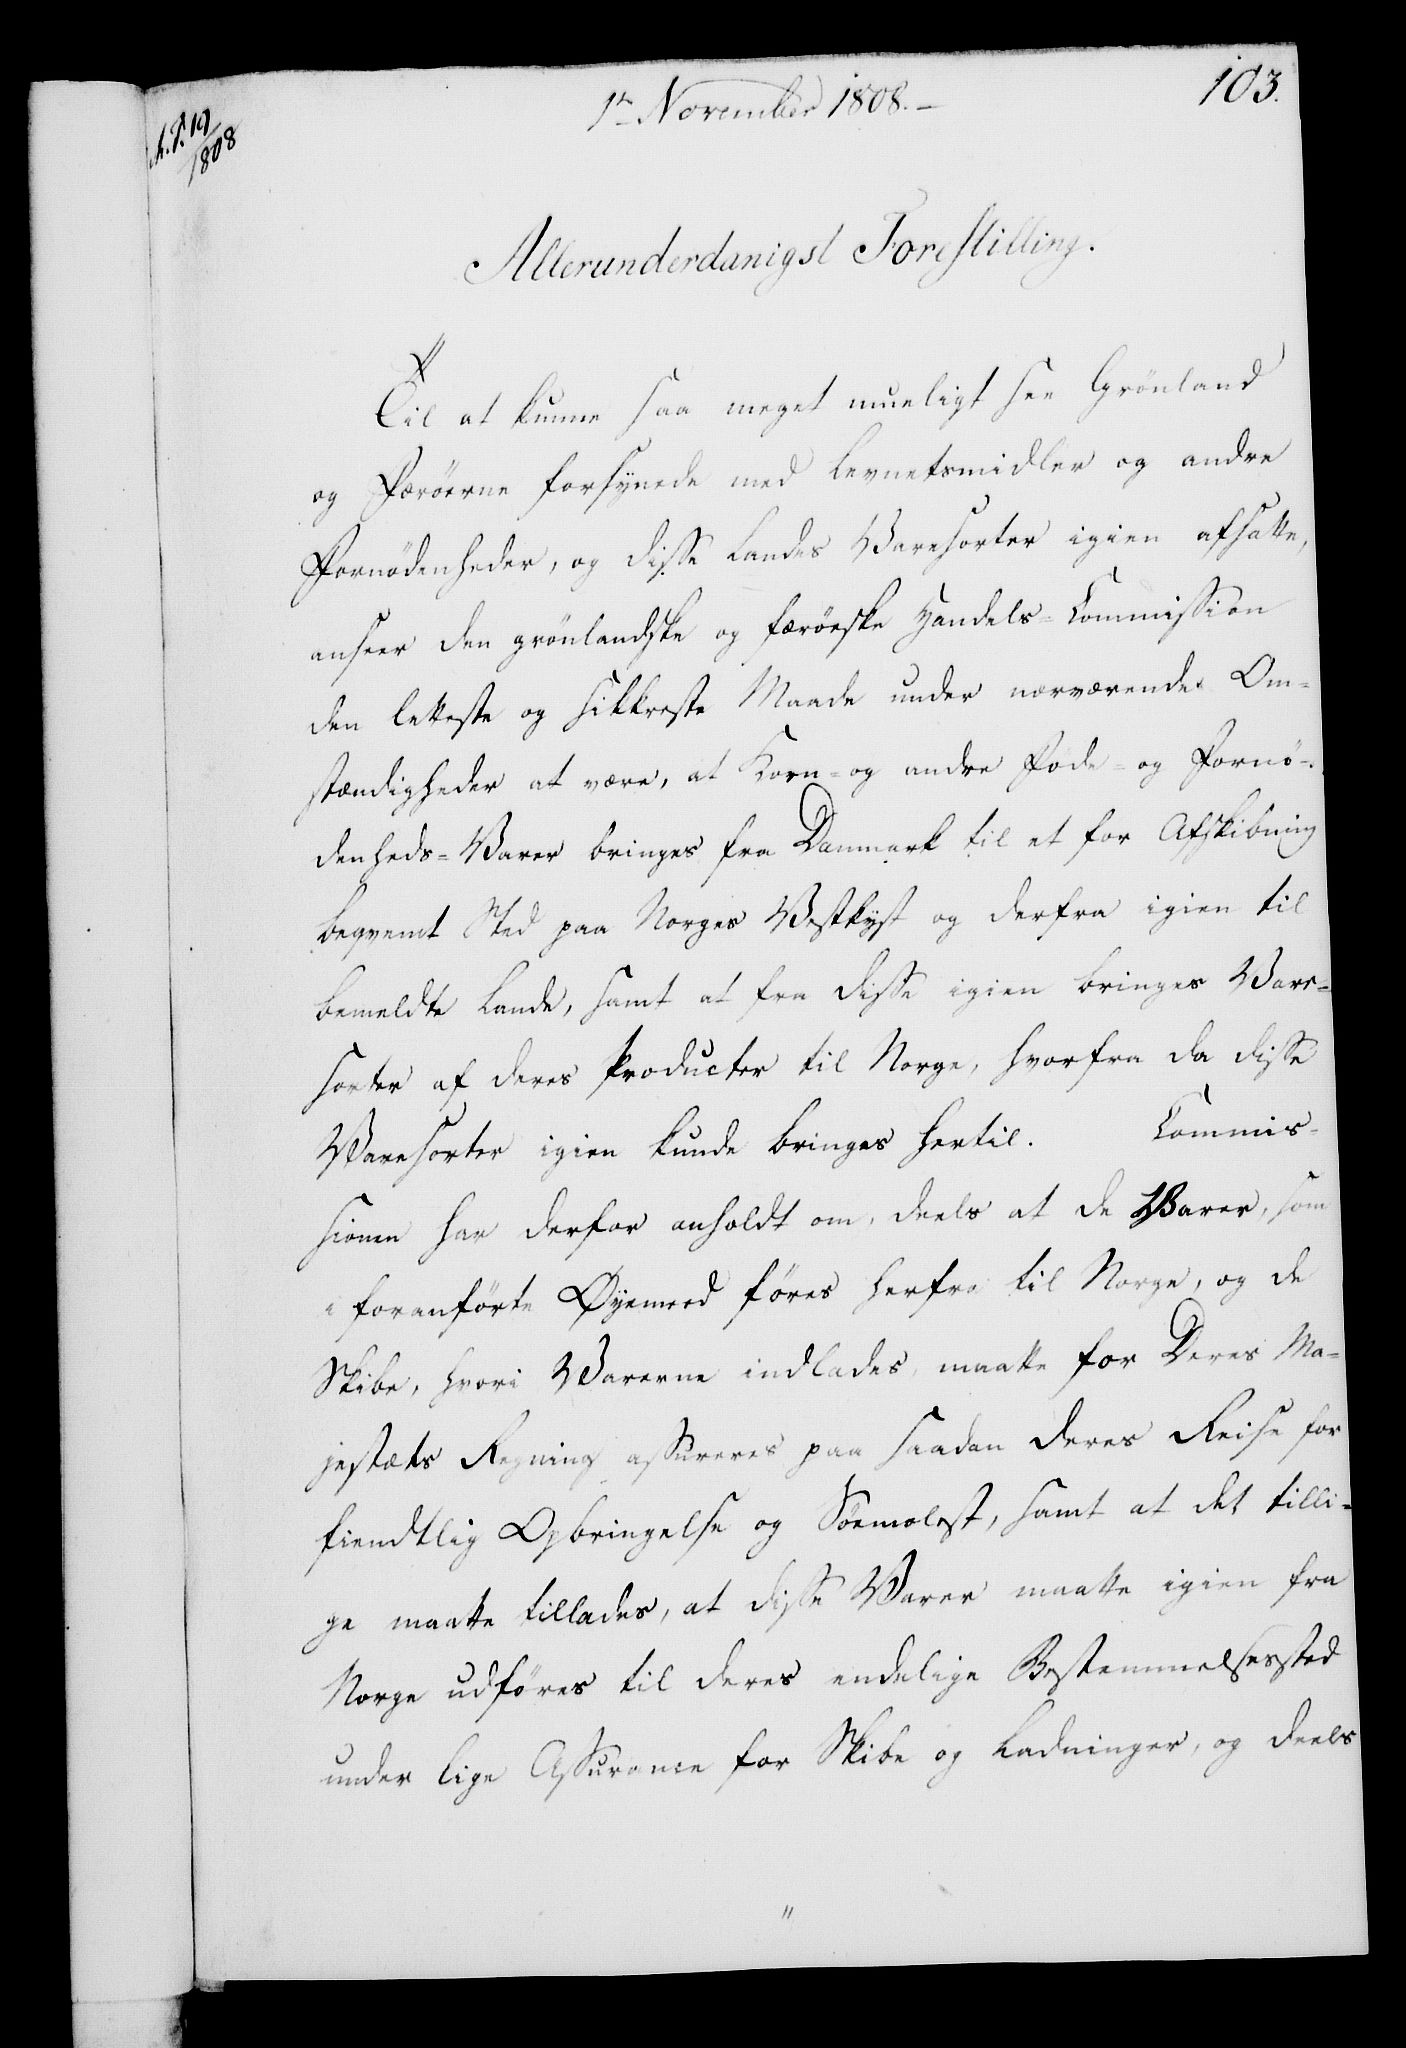 1t November 1808.-
103.
19/1808
Allerunderdanigst Forestilling.
Til at kunne saa meget mueligt see Grönland
og Færöerne forsynede med Levnetsmidler og andre
Fornödenheder, og disse Landes Varesorter igien afsatte,
anseer den grönlandske og færöeske Handels-Commission
den letteste og sikkreste Maade under nærværende Om-
stændigheder at være, at Korn- og andre Föde- og Fornö-
denheds-Varer bringes fra Danmark til et for Afskibning
beqvemt Sted paa Norges Vestkyst og derfra igien til
bemeldte Lande, samt at fra disse igien bringes Vare-
sorter af deres Producter til Norge, hvorfra da disse
Varesorter igien kunde bringes hertil. Commis-
sionen har derfor anholdt om, deels at de Varer, som
i foranförte Øyemeed föres herfra til Norge, og de
Skibe, hvori Varerne indlades, maatte for Deres Ma-
jestæts Regning assureres paa saadan deres Reise for
fiendtlig Opbringelse og Söemolest, samt at det tilli-
ge maatte tillades, at disse Varer maatte igien fra
Norge udföres til deres endelige Bestemmelsessted
under lige Assurance for Skibe og Ladninger, og deels
"